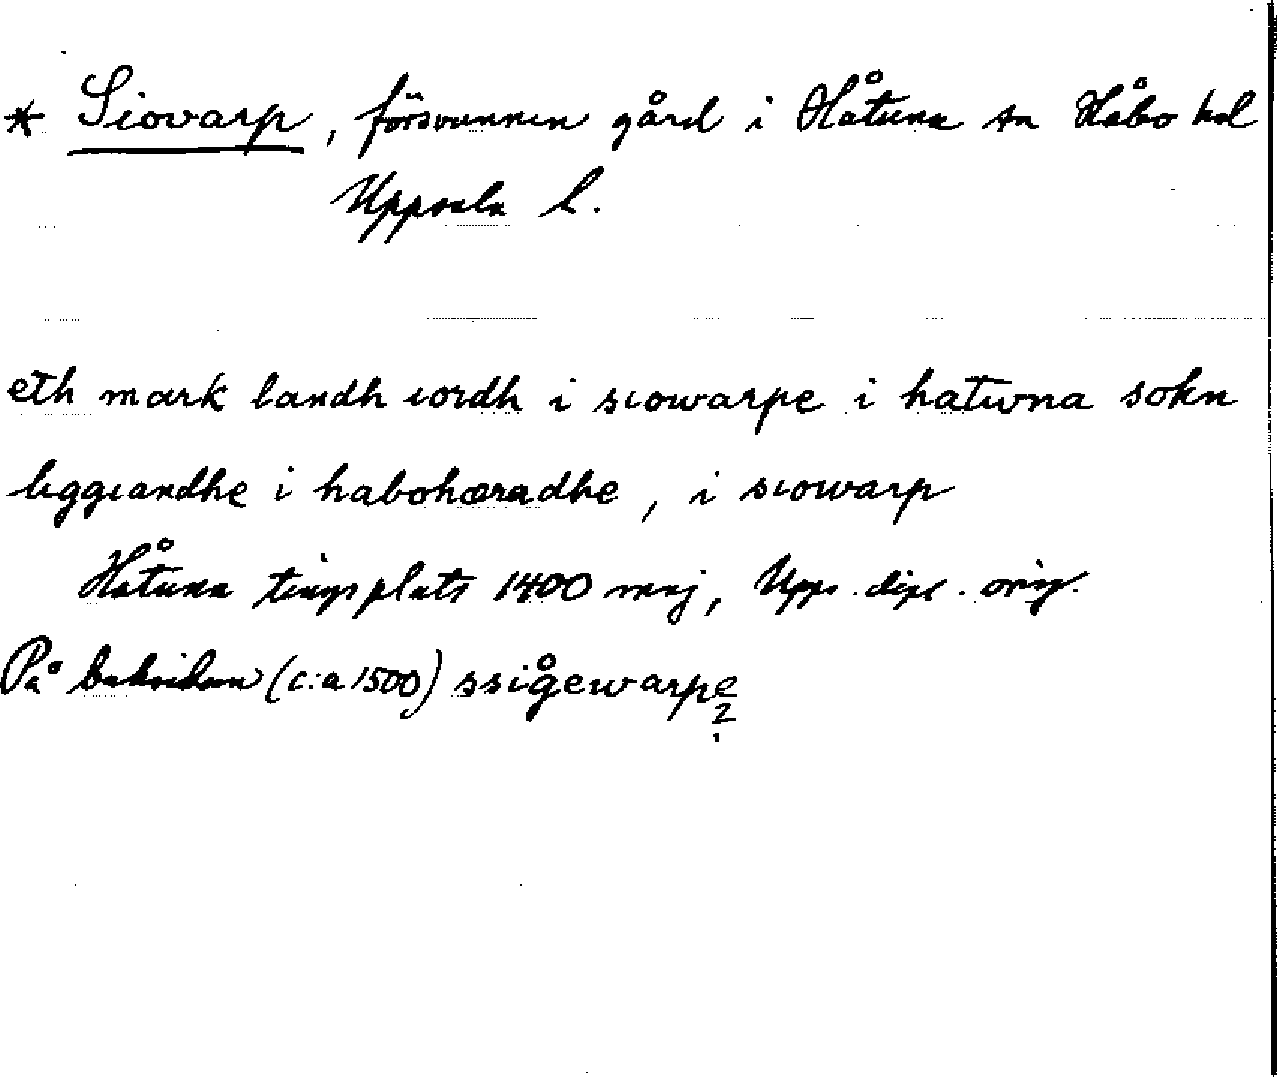 * Siovarp, försvunnen gård i Håtuna sn Håbo hd
Uppsala l.
eth mark landh iordh i siowarpe i hatwna sokn
liggiandhe i habohæradhe, i siowarp
Håtuna tingsplats 1400 maj, Upps. dipl. orig.
På baksidan (c:a 1500) ssigåewarpe
?